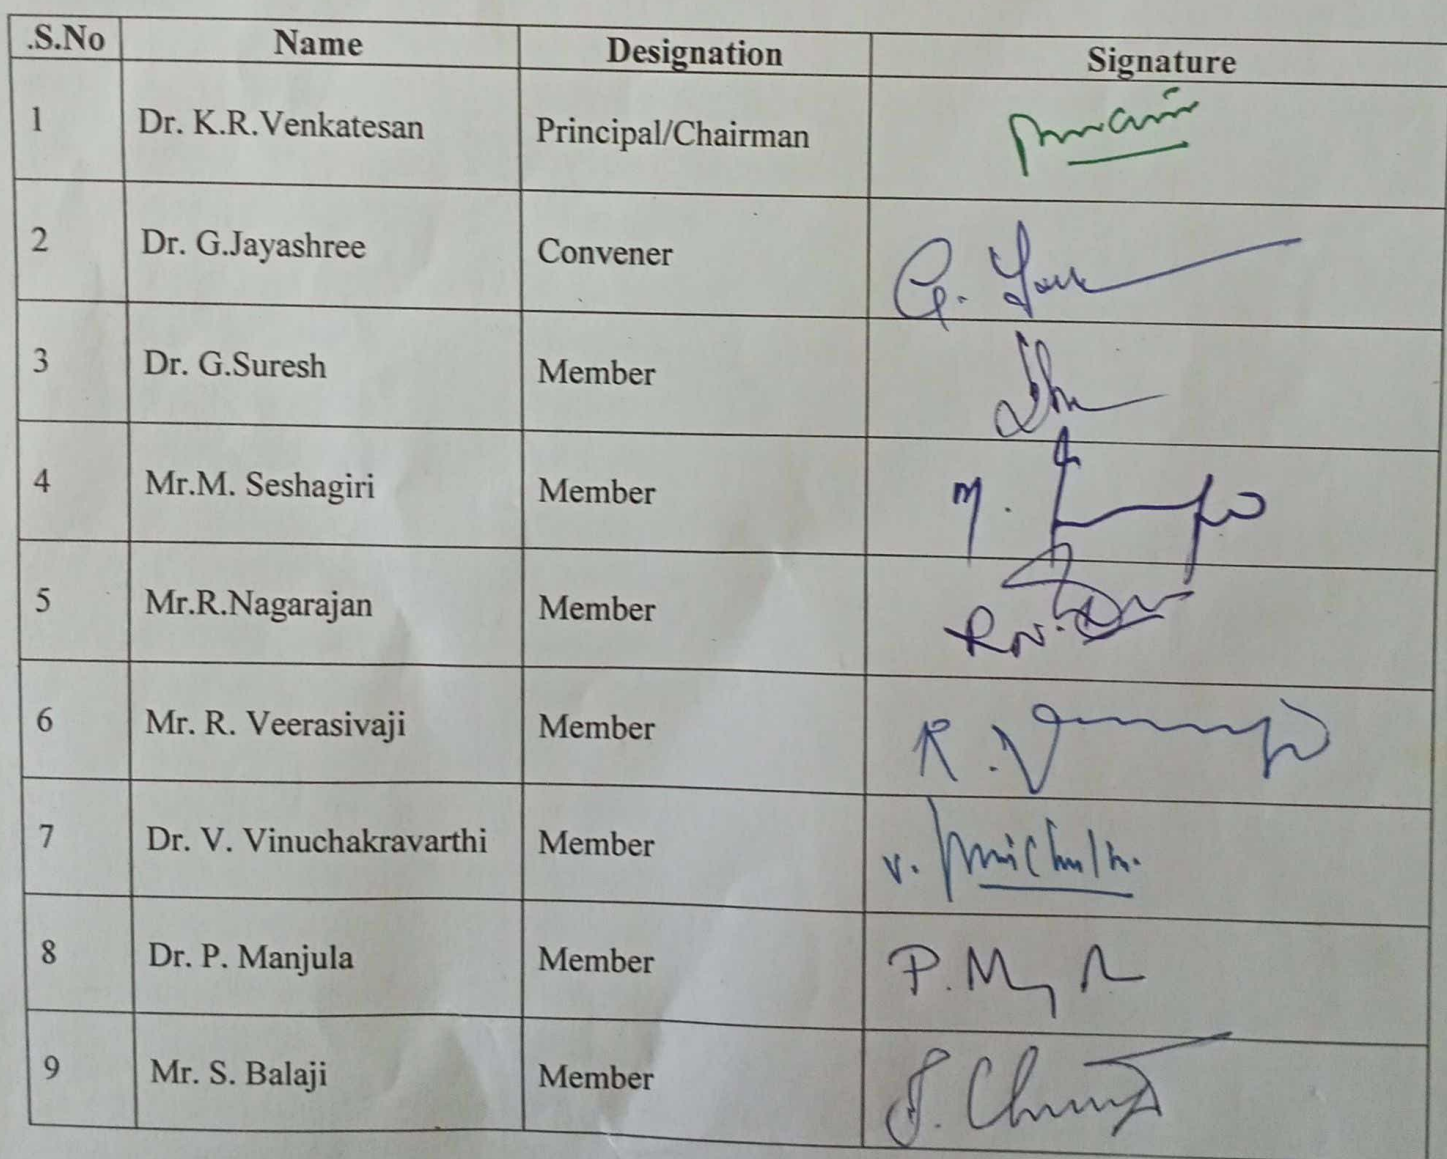 .S.No Name Designation Signature
1 Dr. K.R.Venkatesan Principal/Chairman
2 Dr. G.Jayashree Convener
3 Dr. G.Suresh Member
4 Mr.M. Seshagiri Member
5 Mr.R.Nagarajan Member
6 Mr. R. Veerasivaji Member
7 Dr. V. Vinuchakravarthi Member
8 Dr. P. Manjula Member
9 Mr. S. Balaji Member